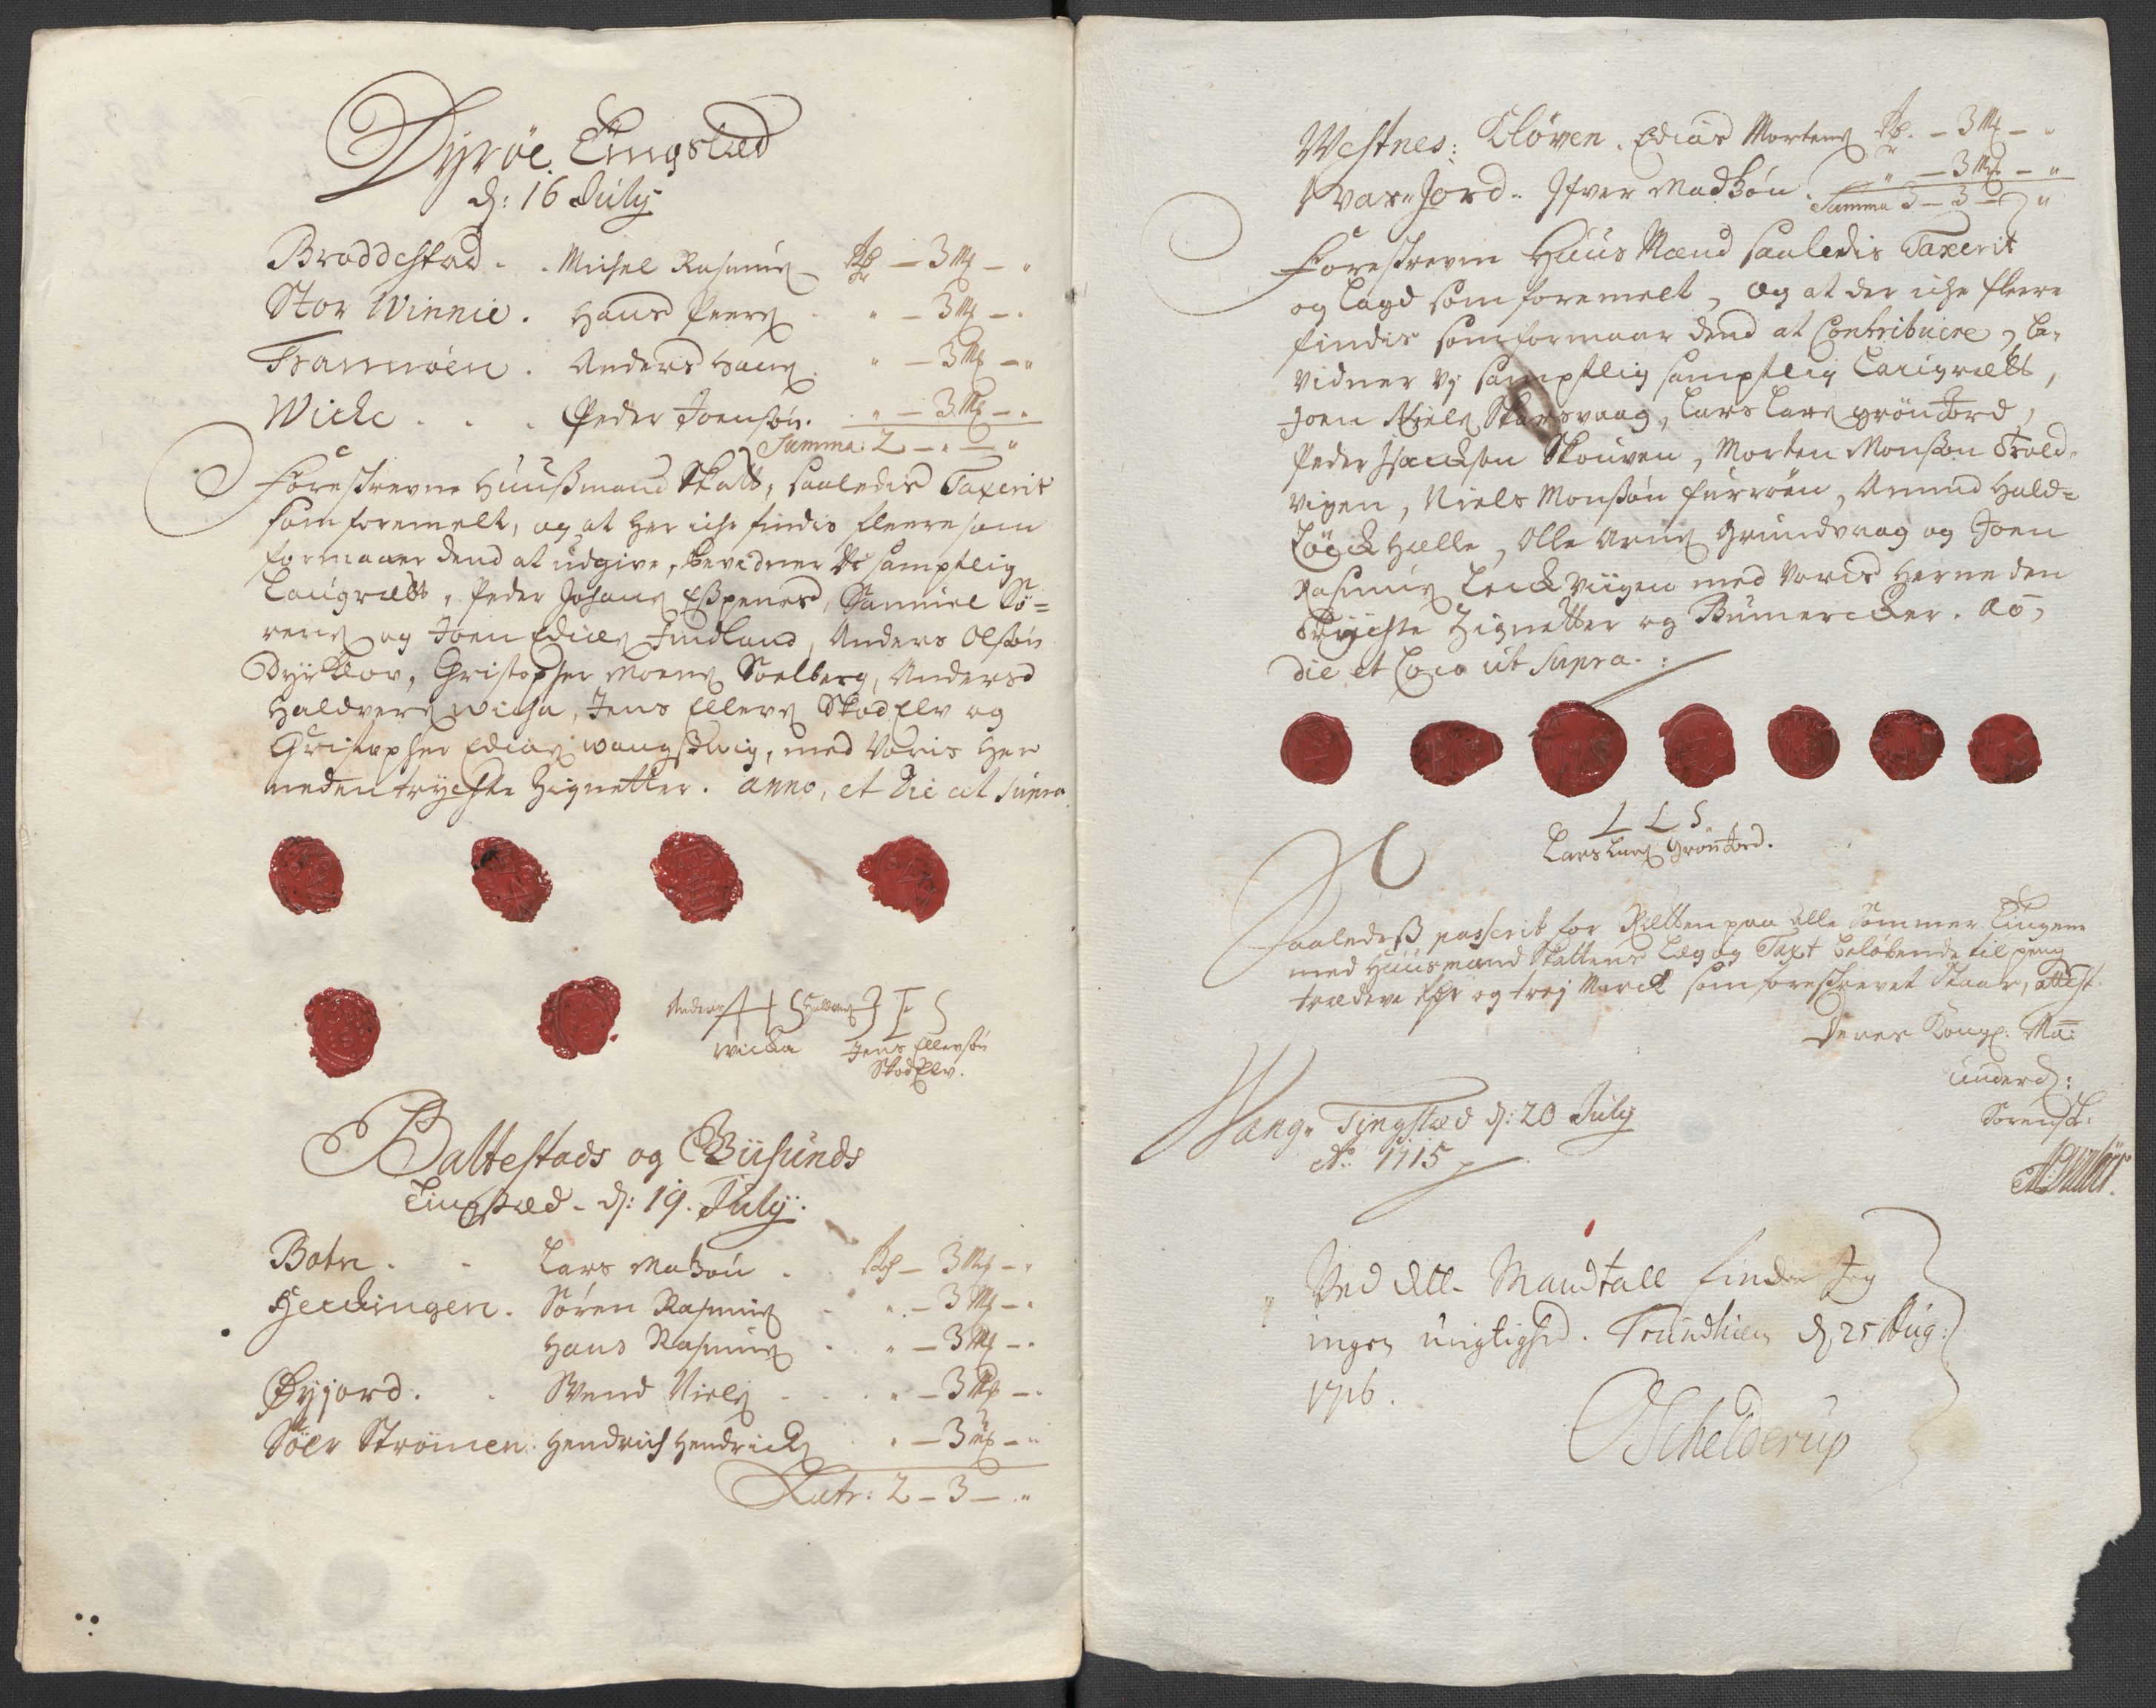 Dyrøe Tingsted
d: 16 July
Broddestad . . Michel Rasmus — Rdr — 3 mk — "
Stor Winnie . Hans Peers . " — 3 mk — "
Trannøen . Anders Hans . " — 3 mk — "
Wicke . . . Peder Joensøn . " — 3 mk — "
Summa 2 — " — "
Foreskrevne Huusmand Skatt, saaledis Taxerit
som formelt, og at her iche findis fleere som
formaaer dend at udgive, bevidner Vi samptlig
Laugrætt, Peder Johans Espenes, Samuel Sø=
rens og Joen Edies Findland, Anders Olsøn
Dyrklov, Christopher Moens Soelberg, Anders
Haldvers Wicha, Jens Ellevs Skodelv og
Christopher Edias Wangsvig, med Voris Her
neden trychte Zignetter. anno, et Die ut supra
Anders H S Haldvers J E S
Wicka Jens Ellevsøn
Skodelv.
Baltestads og Giisunds
Tingsted - d: 19. July.
Botn . . Lars Madsøn . Rdr — 3 mk — "
Heckingen . Søren Rasmus . " — 3 mk — "
Hans Rasmus . " — 3 mk — "
Øyjord . . Svend Niels . " — 3 mk — "
Søer Strømen . Hendrich Hendricks . " — 3 mk — "
Latr: 2 — 3 — "
Westnes: Kløven . Edias Mortens Rdr. — 3 mk — "
Svar Jord . Ifver Madsøn . " — 3 mk — "
Summa 3 — 3 — "
Foreskrevne Huus Mænd saaledis Taxerit
og lagd som foremelt, og at der iche fleere
findis som formaar dend at Contribuere, be-
vidner Vy samptlig samptlig Laugrætt,
Joen Niels Skarsvaag, Lars Lars Grøn Jord,
Peder Isackson Skouven, Morten Monsøn Trold-
vigen, Niels Monsøn Furrøen, Amund Hald=
Helle, Olle Arns Grundvaag og Joen
Rasmus Leckviigen med Voris Herneden
Trychte Zignetter og Bumercker. Ao,
die et Loco ut supra.
L L S
Lars Lars Grøn Jord.
Saaledes passerit for Retten paa alle Sommer Tingene
med Huusmand Skattens Leg og Taxt beløbende til peng
tredive og trej Marck som foreskrevet Staar, attest.
Deres Kongl. Ma:
underd:
Sorensk.
Wang Tingsted d: 20 July
Ao 1715
Ved dette Mandtall finder Jeg
ingen urigtighed. Trundhiem d 25 Aug:
1716.
Schelderup